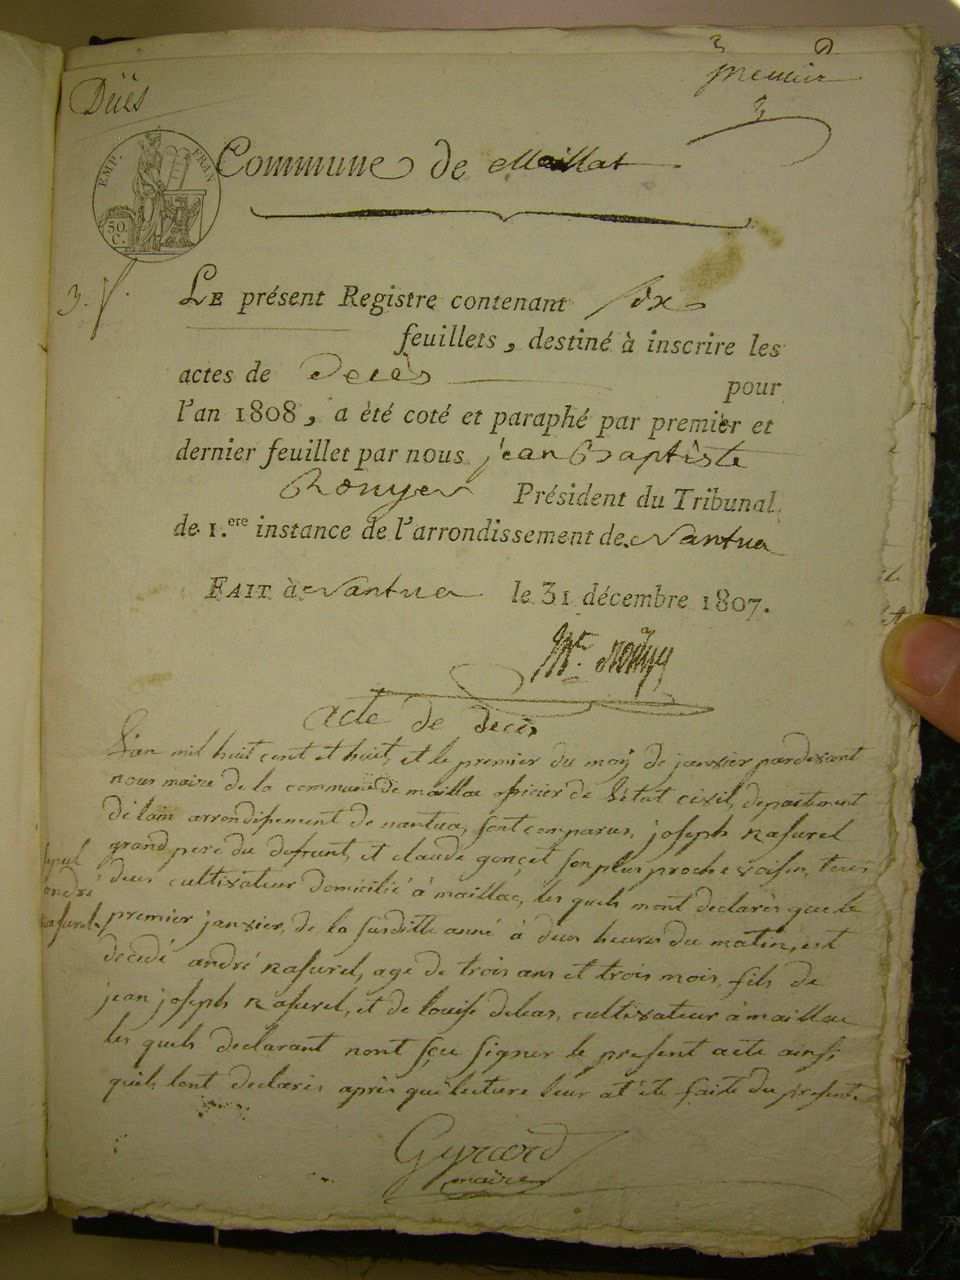 premier
Décès
EMP. FRAN
50. C.
Commune de Maillat
3.
LE présent Registre contenant six
feuillets, destiné à inscrire les
actes de Décès pour
l'an 1808, a été coté et paraphé par premier et
dernier feuillet par nous jean Baptiste
Rouyer Président du Tribunal
de 1.ere instance de l'arrondissement de Nantua
FAIT à Nantua le 31 décembre 1807.
acte de decés
L'an mil huit cent et huit, et le premier du moy de janvier pardevant
nous maire de la commune de maillac officier de l'état civil, departement
de lain arrondissement de nantua, sont comparus, joseph Rasurel
grand pere du deffrunt, et claude gonçet son plus proche voisin, tous
deux cultivateur domicilié à maillac, les quels mont declarés que le
premier janvier, de la susditte anné à deux heures du matin, est
decedé andré Rasurel, age de trois ans et trois mois, fils de
jean joseph Rasurel, et de Louise cultivateur à maillac
les quels declarant nont sçu signer le present acte ainsi
quils lont declarés après que lecture leur at été faite du present.
andré
Rasurel.
Gyrard
maire